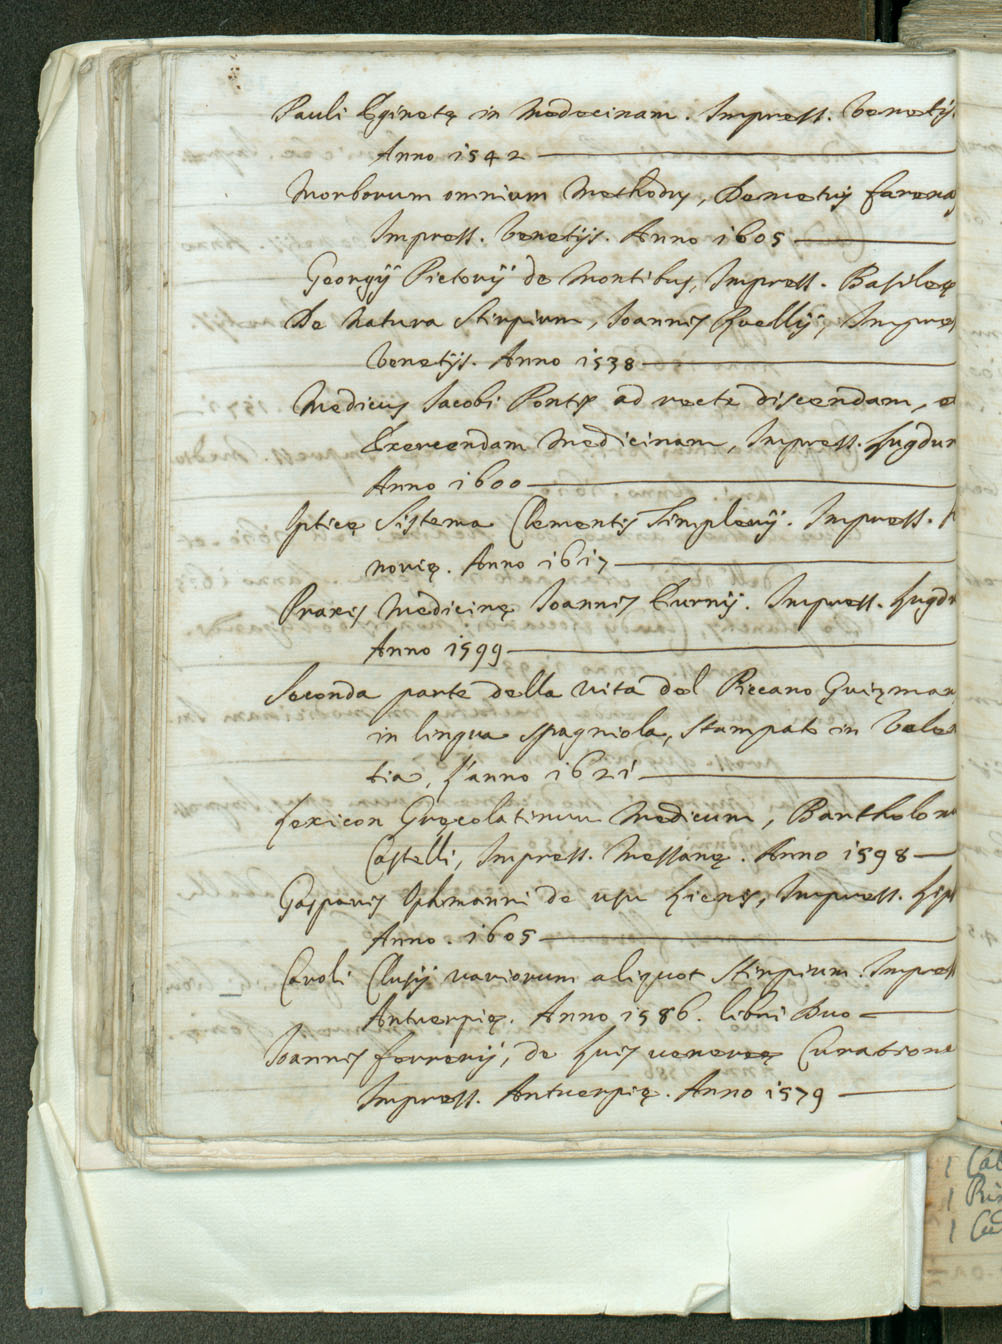 Pauli Eginetę in Medecinam. Impress. Venetijs
Anno 1542
Morborum omnium Methodus, Demetrij
Impress. Venetijs. Anno 1605
Georgij Pictorij de Montibus, Impress. Basileę
De Natura Stirpium, Joannis Ruellij, Impres
Venetijs. Anno 1538
Medicus Jacobi Pontis ad recte discendam, et
Exercendam Medicinam, Impress. Lugdun
Anno 1600
Opticę Sistema Clementis Timplerij. Impress.
novię. Anno 1617
Praxis Medicinę Joannis Eurnij. Impress. Lugdu
Anno 1599
Seconda parte della vita del Piccaro Guizman
in lingua spagniola, stampato in Valen
tia, l'anno 1621
Lexicon Gręcolatinum Medicum, Bartholom
Castelli, Impress. Messanę. Anno 1598
Gasparis Ophmanni de usu Lienis, Impress. Lips
Anno 1605
Caroli Clusij variorum aliquot Stirpium. Impress
Antverpię. Anno 1586. libri Duo
Joannis ferrerij, de Luis venereę Curatione
Impress. Antverpię. Anno 1579
1
1 Ris
1